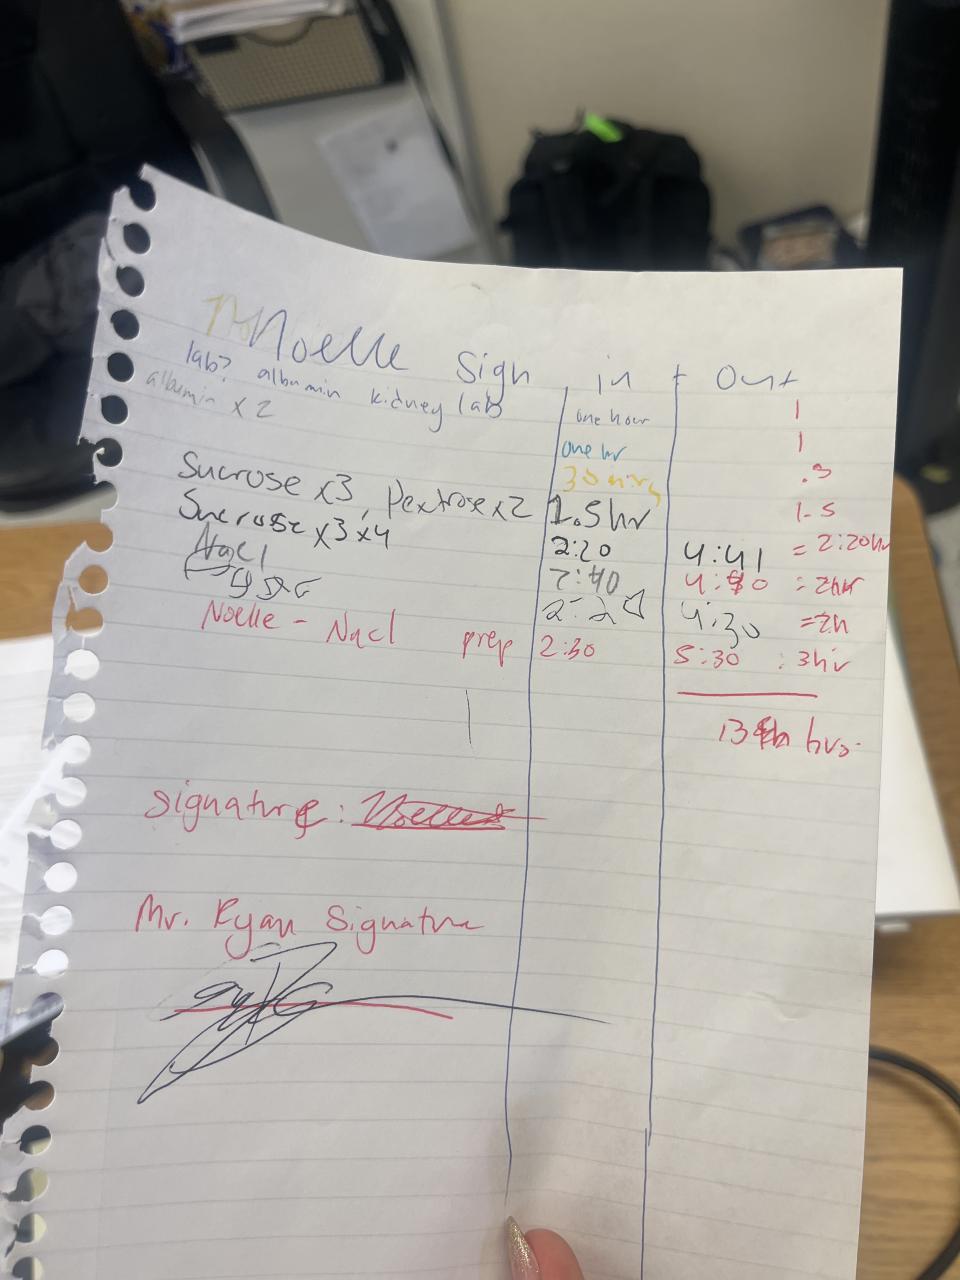 Noelle Sign in + Out
lab? albumin kidney lab one hour 1
albumin x 2 one hr 1
30 mins .5
Sucrose x3, Dextrose x2 1.5hr 1.5
Sucrose x3 x4 2:20 4:41 = 2:20hr
NaCl 2:40 4:40 : 2hr
4:30 =2h
Noelle - NaCl prep 2:30 5:30 : 3hr
13 hrs.
Signature: Noelle
Mr. Ryan Signature